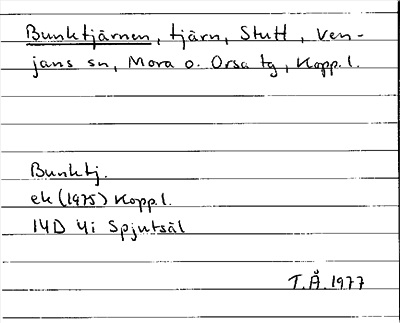 Bunktjärnen, tjärn, Stutt, Ven-
jans sn, Mora o. Orsa tg, Kopp.l.
Bunktj.
ek (1975) Kopp.l.
14D 4i Spjutsäl
T.Å. 1977